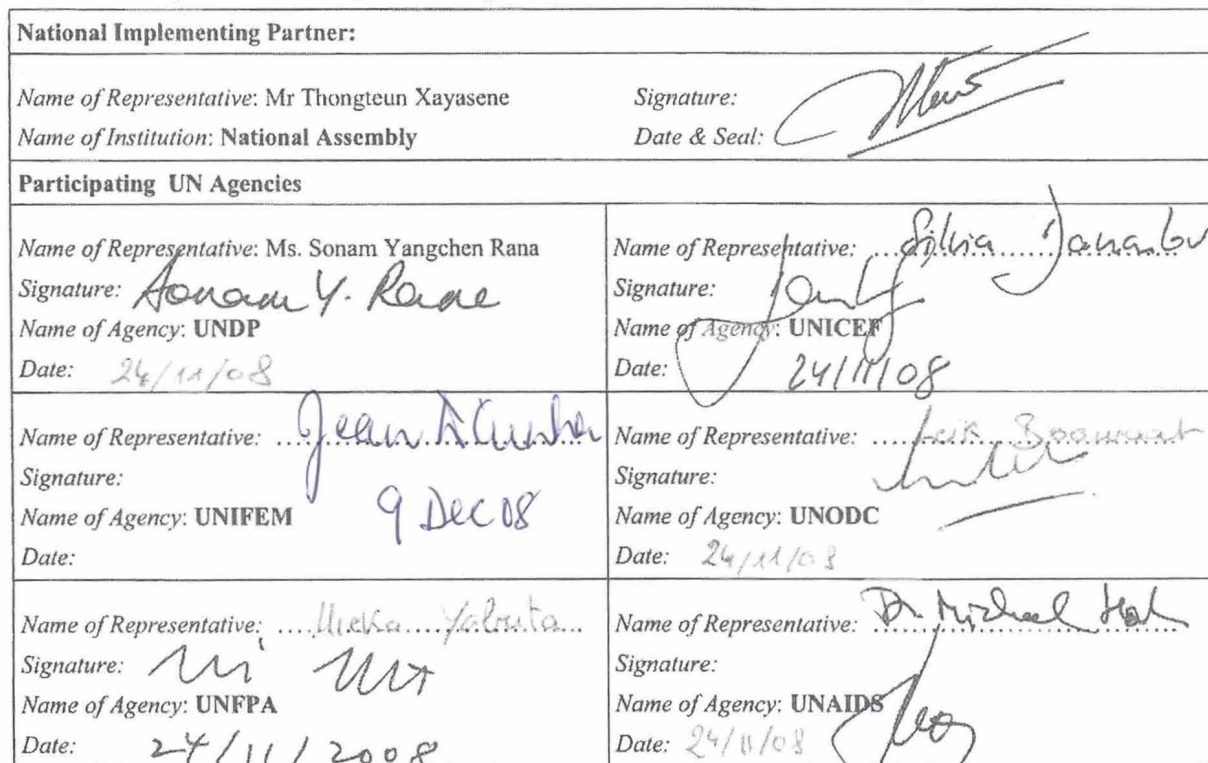 National Implementing Partner:
Name of Representative: Mr Thongteun Xayasene
Signature:
Name of Institution: National Assembly
Date & Seal:
Participating UN Agencies
Name of Representative: Ms. Sonam Yangchen Rana
Signature: Sonam Y. Rana
Name of Agency: UNDP
Date: 24/11/08
Name of Representative: Silvia
Signature:
Name of Agency: UNICEF
Date: 24/11/08
Name of Representative: Jean D'Cunha
Signature:
Name of Agency: UNIFEM
9 Dec 08
Date:
Name of Representative: Leik Boonwaat
Signature:
Name of Agency: UNODC
Date: 24/11/08
Name of Representative: Yabuta
Signature:
Name of Agency: UNFPA
Date: 24/11/2008
Name of Representative: Dr Michael
Signature:
Name of Agency: UNAIDS
Date: 24/11/08